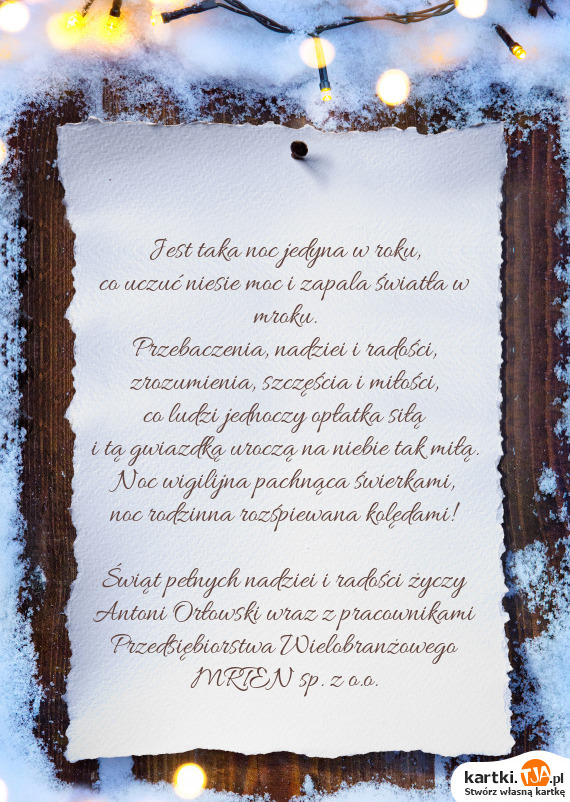 Jest taka noc jedyna w roku,
co uczuć niesie moc i zapala światła w
mroku.
Przebaczenia, nadziei i radości,
zrozumienia, szczęścia i miłości,
co ludzi jednoczy opłatka siłą
i tą gwiazdką uroczą na niebie tak miłą.
Noc wigilijna pachnąca świerkami,
noc rodzinna rozśpiewana kolędami!
Świąt pełnych nadziei i radości życzy
Antoni Orłowski wraz z pracownikami
Przedsiębiorstwa Wielobranżowego
MRTEN sp. z o.o.
kartki.TJA.pl
Stwórz własną kartkę